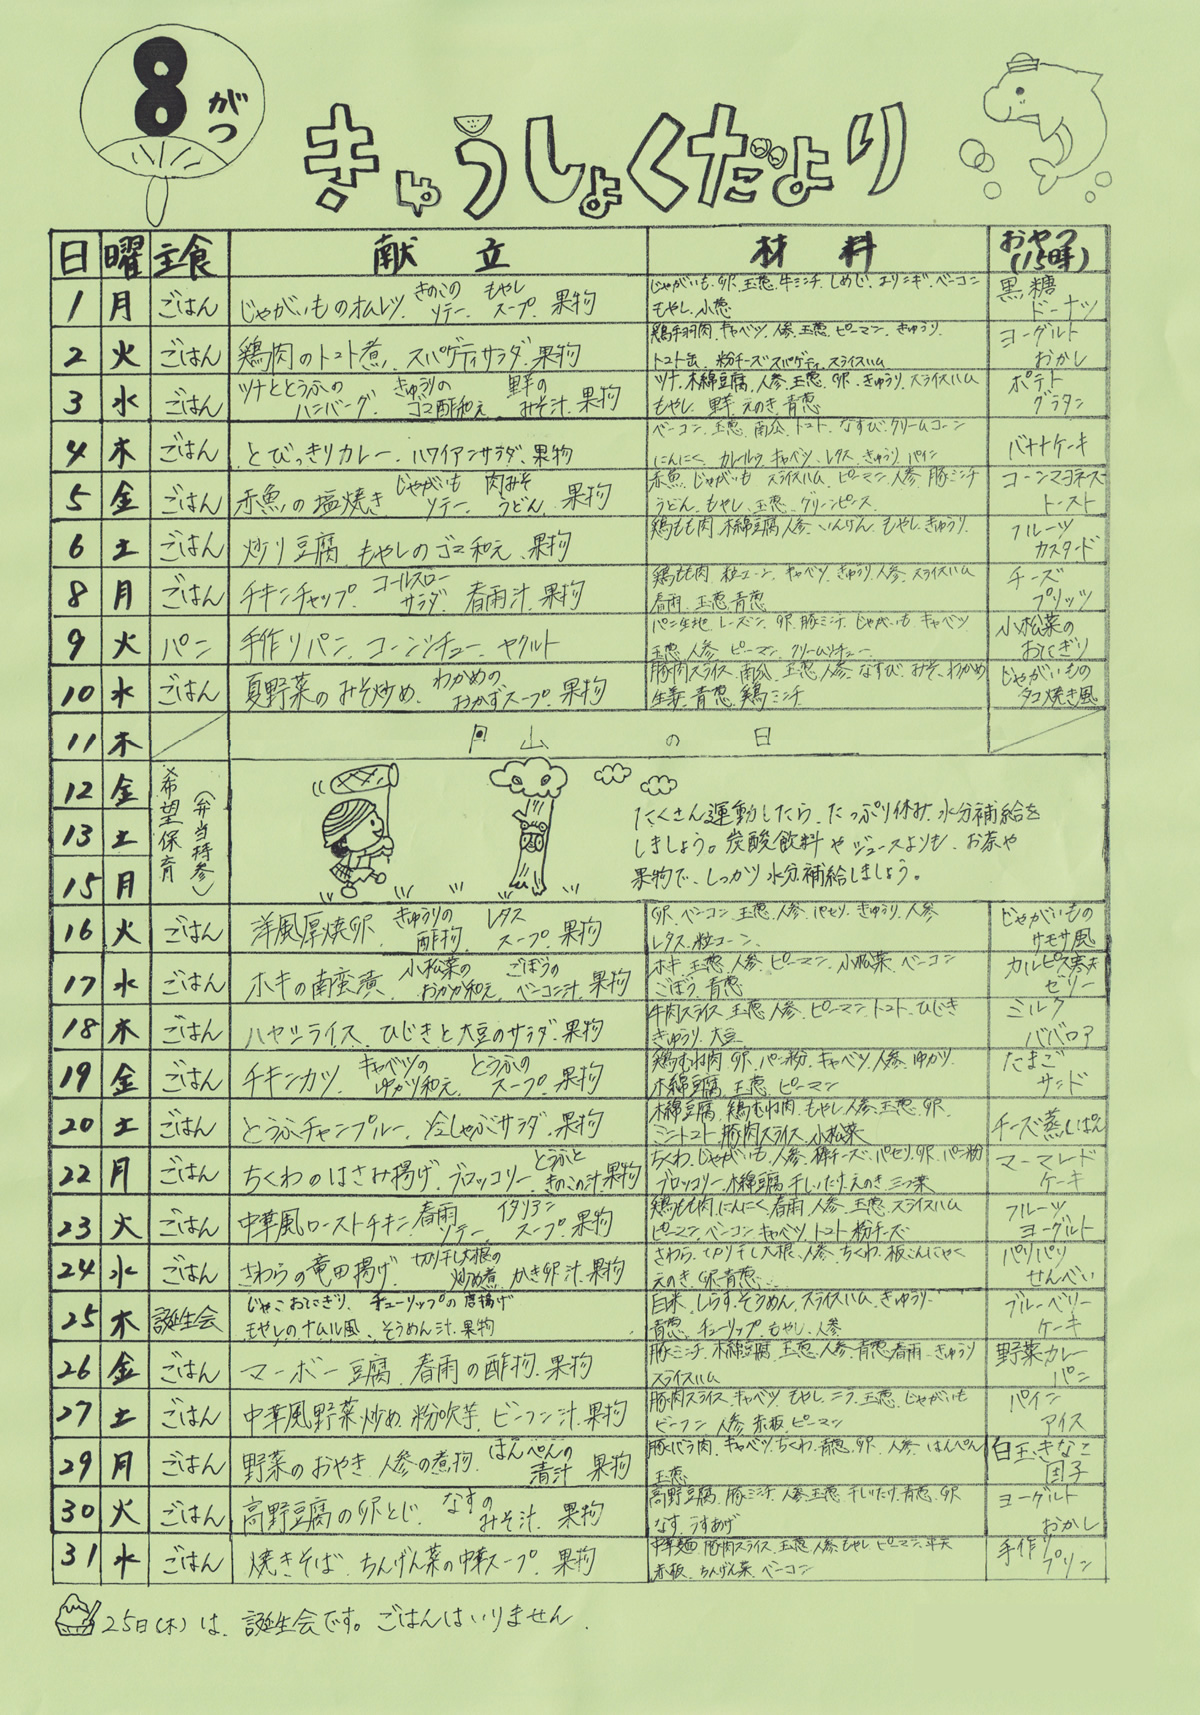 8がつ
きゅうしょくだより
日 曜 主食 献立 材料 おやつ(15時)
1 月 ごはん じゃがいものオムレツ、きのこのソテー、もやしスープ、果物 じゃがいも、卵、玉葱、牛ミンチ、しめじ、エリンギ、ベーコン 黒糖
もやし、小葱 ドーナツ
2 火 ごはん 鶏肉のトマト煮、スパゲティサラダ、果物 鶏手羽肉、キャベツ、人参、玉葱、ピーマン、きゅうり、 ヨーグルト
トマト缶、粉チーズ、スパゲティ、スライスハム おかし
3 水 ごはん ツナととうふのハンバーグ、きゅうりのゴマ酢和え、里芋のみそ汁、果物 ツナ、木綿豆腐、人参、玉葱、卵、きゅうり、スライスハム ポテト
もやし、里芋、えのき、青葱 グラタン
4 木 ごはん とびっきりカレー、ハワイアンサラダ、果物 ベーコン、玉葱、南瓜、トマト、なすび、クリームコーン バナナケーキ
にんにく、カレールウ、キャベツ、レタス、きゅうり、パイン
5 金 ごはん 赤魚の塩焼き、じゃがいもソテー、肉みそうどん、果物 赤魚、じゃがいも、スライスハム、ピーマン、人参、豚ミンチ コーンマヨネーズ
うどん、もやし、玉葱、グリーンピース トースト
6 土 ごはん 炒り豆腐、もやしのゴマ和え、果物 鶏もも肉、木綿豆腐、人参、いんげん、もやし、きゅうり、 フルーツ
カスタード
8 月 ごはん チキンチャップ、コールスローサラダ、春雨汁、果物 鶏もも肉、粒コーン、キャベツ、きゅうり、人参、スライスハム チーズ
春雨、玉葱、青葱 プリッツ
9 火 パン 手作りパン、コーンシチュー、ヤクルト パン生地、レーズン、卵、豚ミンチ、じゃがいも、キャベツ 小松菜の
玉葱、人参、ピーマン、クリームシチュー おにぎり
10 水 ごはん 夏野菜のみそ炒め、わかめのおかずスープ、果物 豚肉スライス、南瓜、玉葱、人参、なすび、みそ、わかめ じゃがいもの
生姜、青葱、鶏ミンチ タコ焼き風
11 木 山の日
12 金
13 土
15 月
※希望保育
(弁当持参)
たくさん運動したら、たっぷり休み、水分補給を
しましょう。炭酸飲料やジュースよりも、お茶や
果物で、しっかり水分補給しましょう。
16 火 ごはん 洋風厚焼卵、きゅうりの酢物、レタススープ、果物 卵、ベーコン、玉葱、人参、パセリ、きゅうり、人参 じゃがいもの
レタス、粒コーン、 サモサ風
17 水 ごはん ホキの南蛮漬、小松菜のおかか和え、ごぼうのベーコン汁、果物 ホキ、玉葱、人参、ピーマン、小松菜、ベーコン カルピス寒天
ごぼう、青葱 ゼリー
18 木 ごはん ハヤシライス、ひじきと大豆のサラダ、果物 牛肉スライス、玉葱、人参、ピーマン、トマト、ひじき ミルク
きゅうり、大豆 ババロア
19 金 ごはん チキンカツ、キャベツのゆかり和え、とうふのスープ、果物 鶏むね肉、卵、パン粉、キャベツ、人参、ゆかり、 たまご
木綿豆腐、玉葱、ピーマン サンド
20 土 ごはん とうふチャンプルー、冷しゃぶサラダ、果物 木綿豆腐、鶏むね肉、もやし、人参、玉葱、卵、 チーズ蒸しぱん
ミニトマト、豚肉スライス、小松菜
22 月 ごはん ちくわのはさみ揚げ、ブロッコリー、とうふときのこの汁、果物 ちくわ、じゃがいも、人参、粉チーズ、パセリ、卵、パン粉 マーマレード
ブロッコリー、木綿豆腐、干しいたけ、えのき、三つ葉 ケーキ
23 火 ごはん 中華風ローストチキン、春雨ソテー、イタリアンスープ、果物 鶏もも肉、にんにく、春雨、人参、玉葱、スライスハム フルーツ
ピーマン、ベーコン、キャベツ、トマト、粉チーズ ヨーグルト
24 水 ごはん さわらの竜田揚げ、切り干し大根の炒め煮、かき卵汁、果物 さわら、切り干し大根、人参、ちくわ、板こんにゃく パリパリ
えのき、卵、青葱 せんべい
25 木 誕生会 じゃこおにぎり、チューリップの唐揚げ 白米、しらす、そうめん、スライスハム、きゅうり ブルーベリー
もやしのナムル風、そうめん汁、果物 青葱、チューリップ、もやし、人参 ケーキ
26 金 ごはん マーボー豆腐、春雨の酢物、果物 豚ミンチ、木綿豆腐、玉葱、人参、青葱、春雨、きゅうり 野菜カレー
スライスハム パン
27 土 ごはん 中華風野菜炒め、粉吹芋、ビーフン汁、果物 豚肉スライス、キャベツ、もやし、ニラ、玉葱、じゃがいも パイン
ビーフン、人参、赤板、ピーマン アイス
29 月 ごはん 野菜のおやき、人参の煮物、はんぺんの清汁、果物 豚バラ肉、キャベツ、ちくわ、青葱、卵、人参、はんぺん 白玉きなこ
玉葱 団子
30 火 ごはん 高野豆腐の卵とじ、なすのみそ汁、果物 高野豆腐、豚ミンチ、人参、玉葱、干しいたけ、青葱、卵 ヨーグルト
なす、うすあげ おかし
31 水 ごはん 焼きそば、ちんげん菜の中華スープ、果物 中華麺、豚肉スライス、玉葱、人参、もやし、ピーマン、平天 手作り
赤板、ちんげん菜、ベーコン プリン
25日(木)は、誕生会です。ごはんはいりません。